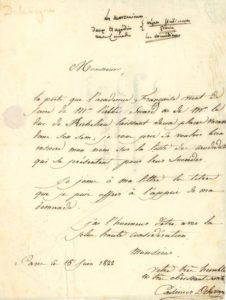 Delavigne
les messéniennes
deux tragédies
vêpres siciliennes
paria
les comédiens
Monsieur,
la perte que l'académie Française vient de
faire de Mr l'abbé Sicard et de Mr le
duc de Richelieu laissant deux places vacantes
dans son sein, je vous prie de vouloir bien
inscrire mon nom sur la liste des candidats
qui se présentent pour leur succéder
Je joins à ma lettre les titres
que je puis offrir à l'appui de ma
demande.
j'ai l'honneur d'être avec la
plus haute considération
Monsieur
Votre très humble
et très obéissant
Paris ce 15 juin 1822
Casimir Delavigne